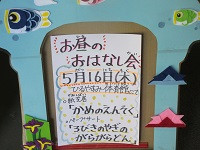 お昼の
おはなし会
5月16日(木)
ひるやすみ・体育館にて
◦紙芝居
「かめのえんそく」
◦パネルシアター
「3びきのやぎの
がらがらどん」